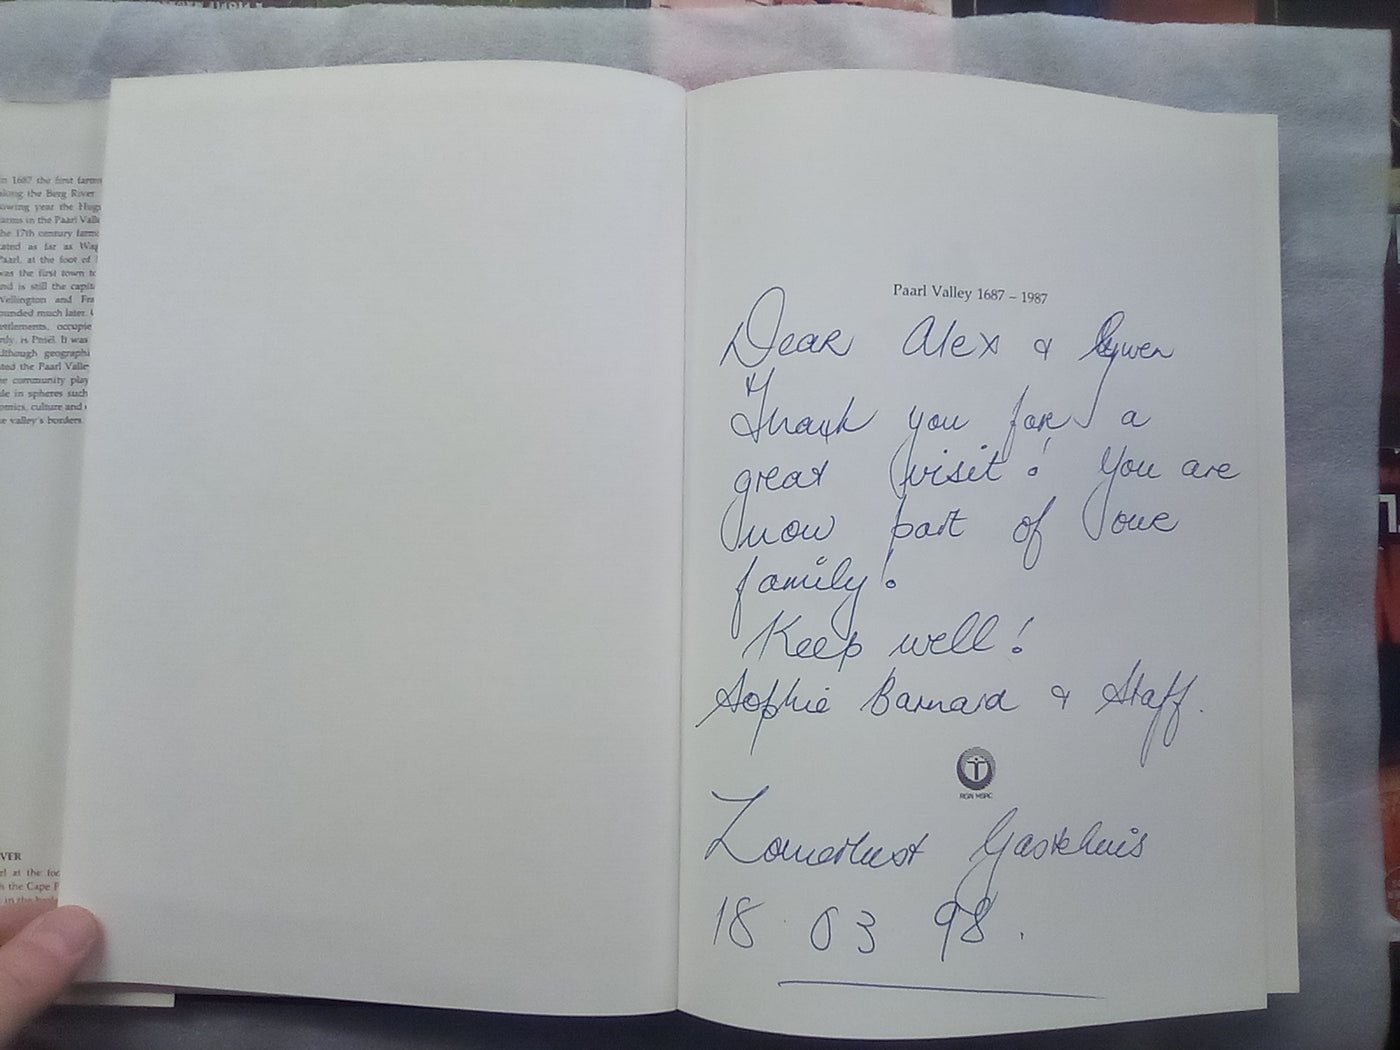 in 1687 the first farms
along the Berg River
owing year the Hug
farms in the Paarl Valle
the 17th century farms
tated as far as Wag
Paarl, at the foot of
was the first town to
and is still the capita
Wellington and Fra
ounded much later.
ettlements, occupie
rdy, is Pniël. It was
lthough geographi
ted the Paarl Valle
he community play
le in spheres such
omics, culture and
e valley's borders
VER
el at the foo
h the Cape P
in the
Paarl Valley 1687 – 1987
Dear Alex &
Thank you for a
great visit! You are
now part of our
family!
Keep well!
Sophie Barnard & Staff.
RGN HSRC
Zomerlust Gastehuis
18 03 98.